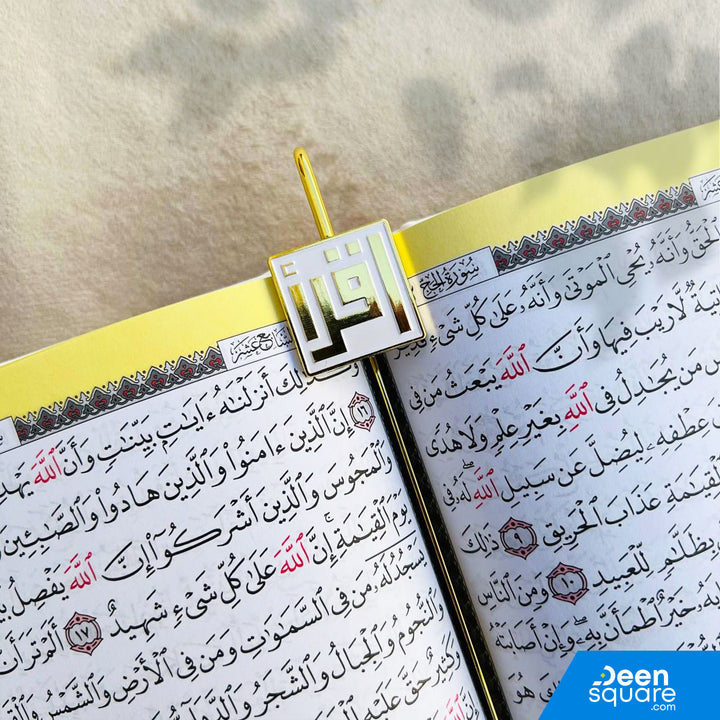 اقرأ
سُورَةُ الحَجِّ
الْحَقُّ وَأَنَّهُۥ يُحْيِ الْمَوْتَىٰ وَأَنَّهُۥ عَلَىٰ كُلِّ شَيْءٍ
لَّا رَيْبَ فِيهَا وَأَنَّ ٱللَّهَ يَبْعَثُ مَن فِي
مَن يُجَادِلُ فِي ٱللَّهِ بِغَيْرِ عِلْمٍ وَلَا هُدًى
عِطْفِهِۦ لِيُضِلَّ عَن سَبِيلِ ٱللَّهِ لَهُۥ فِي
الْقِيَامَةِ عَذَابَ الْحَرِيقِ ٩ ذَٰلِكَ
بِظَلَّامٍ لِّلْعَبِيدِ ١٠ وَمِنَ النَّاسِ
خَيْرٌ اطْمَأَنَّ بِهِۦ وَإِنْ أَصَابَتْهُ
أَنزَلْنَاهُ ءَايَاتٍ بَيِّنَاتٍ وَأَنَّ ٱللَّهَ
١٦ إِنَّ الَّذِينَ ءَامَنُوا وَالَّذِينَ هَادُوا وَالصَّابِئِينَ
وَالْمَجُوسَ وَالَّذِينَ أَشْرَكُوا إِنَّ ٱللَّهَ يَفْصِلُ
يَوْمَ الْقِيَامَةِ إِنَّ ٱللَّهَ عَلَىٰ كُلِّ شَيْءٍ شَهِيدٌ ١٧ أَلَمْ تَرَ أَنَّ
يَسْجُدُ لَهُۥ مَن فِي السَّمَاوَاتِ وَمَن فِي الْأَرْضِ وَالشَّمْسُ
وَالنُّجُومُ وَالْجِبَالُ وَالشَّجَرُ وَالدَّوَابُّ
وَكَثِيرٌ حَقَّ عَلَيْهِ
Deen
square
.com